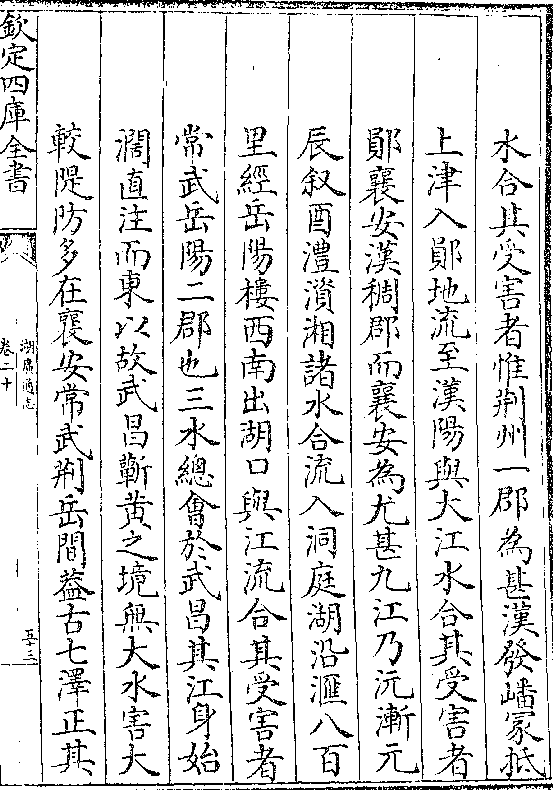 水合其受害者惟荆州一郡為甚漢發嶓冢抵
上津入鄖地流至漢陽與大江水合其受害者
鄖襄安漢稠郡而襄安為尤甚九江乃沅漸元
辰叙酉澧澬湘諸水合流入洞庭湖沿滙八百
里經岳陽樓西南出湖口與江流合其受害者
常武岳陽二郡也三水總會於武昌其江身始
濶直注而東以故武昌蘄黄之境無大水害大
較隄防多在襄安常武荆岳間葢古七澤正其
欽定四庫全書
湖廣通志
卷二十
五三